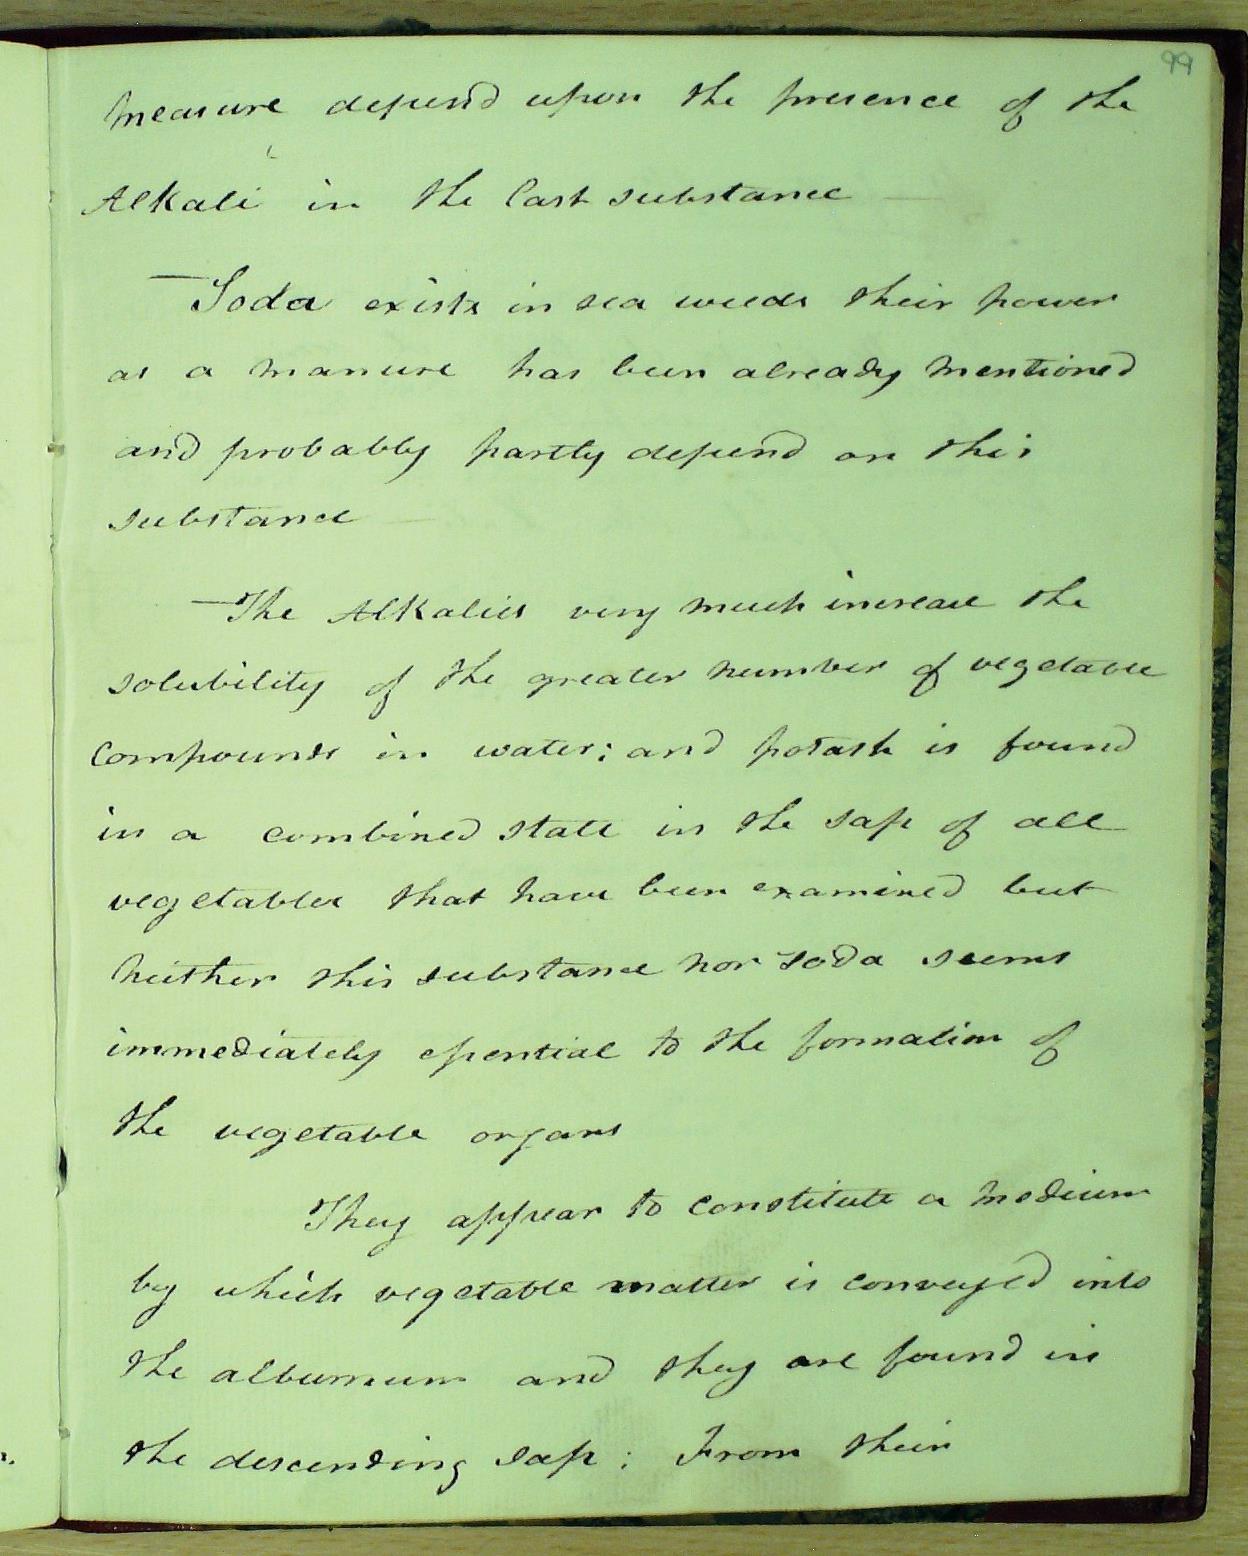 99
measure depend upon the presence of the
Alkali in the last substance —
— Soda exists in sea weeds their power
as a manure has been already mentioned
and probably partly depend on this
substance —
— The Alkalies very much increase the
solubility of the greater number of vegetable
compounds in water; and potash is found
in a combined state in the sap of all
vegetables that have been examined but
neither this substance nor soda seems
immediately essential to the formation of
the vegetable organs
They appear to constitute a medium
by which vegetable matter is conveyed into
the alburnum and they are found in
the descending sap; From their